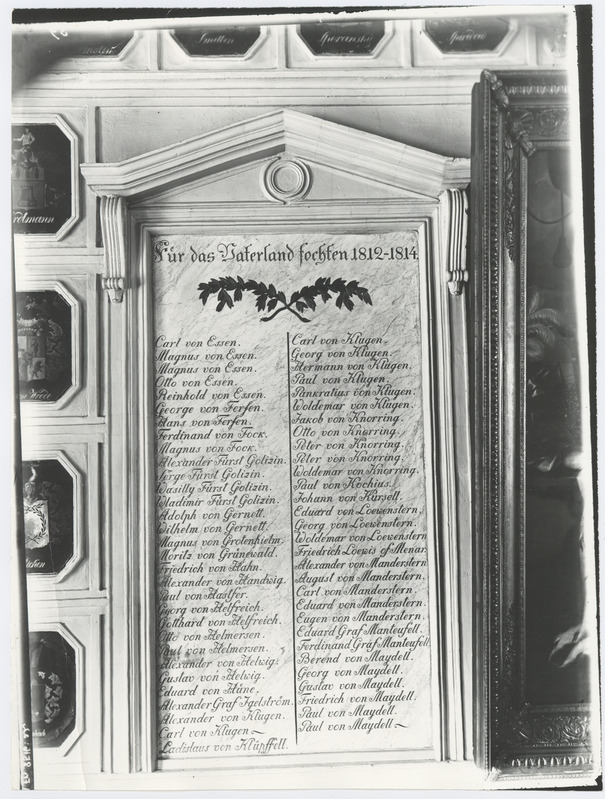 Smitten
Für das Vaterland fochten 1812-1814
Carl von Essen.
Magnus von Essen.
Magnus von Essen.
Otto von Essen.
Reinhold von Essen.
George von Fersen.
Hans von Fersen.
Ferdinand von Fock.
Magnus von Fock.
Alexander Fürst Golizin.
Serge Fürst Golizin.
Wasilly Fürst Golizin.
Wladimir Fürst Golizin.
Adolph von Gernett.
Wilhelm von Gernett.
Magnus von Grotenhielm.
Moritz von Grünewald.
Friedrich von Hahn.
Alexander von Handwig.
Paul von Hastfer.
Georg von Helfreich.
Gotthard von Helfreich.
Otto von Helmersen.
Paul von Helmersen.
Alexander von Helwig.
Gustav von Helwig.
Eduard von Hüne.
Alexander Graf Igelström.
Alexander von Klugen.
Carl von Klugen
Ladislaus von Klüpffell.
Carl von Klugen.
Georg von Klugen.
Hermann von Klugen.
Paul von Klugen.
Pankratius von Klugen.
Woldemar von Klugen.
Jakob von Knorring.
Otto von Knorring.
Peter von Knorring.
Peter von Knorring.
Woldemar von Knorring.
Paul von Kochius.
Johann von Kursell.
Eduard von Loewenstern.
Georg von Loewenstern.
Woldemar von Loewenstern
Friedrich Loewis of Menar.
Alexander von Manderstern
August von Manderstern.
Carl von Manderstern.
Eduard von Manderstern.
Eugen von Manderstern.
Eduard Graf Manteufell.
Ferdinand Graf Manteufell
Berend von Maydell.
Georg von Maydell.
Gustav von Maydell.
Friedrich von Maydell.
Paul von Maydell.
Paul von Maydell